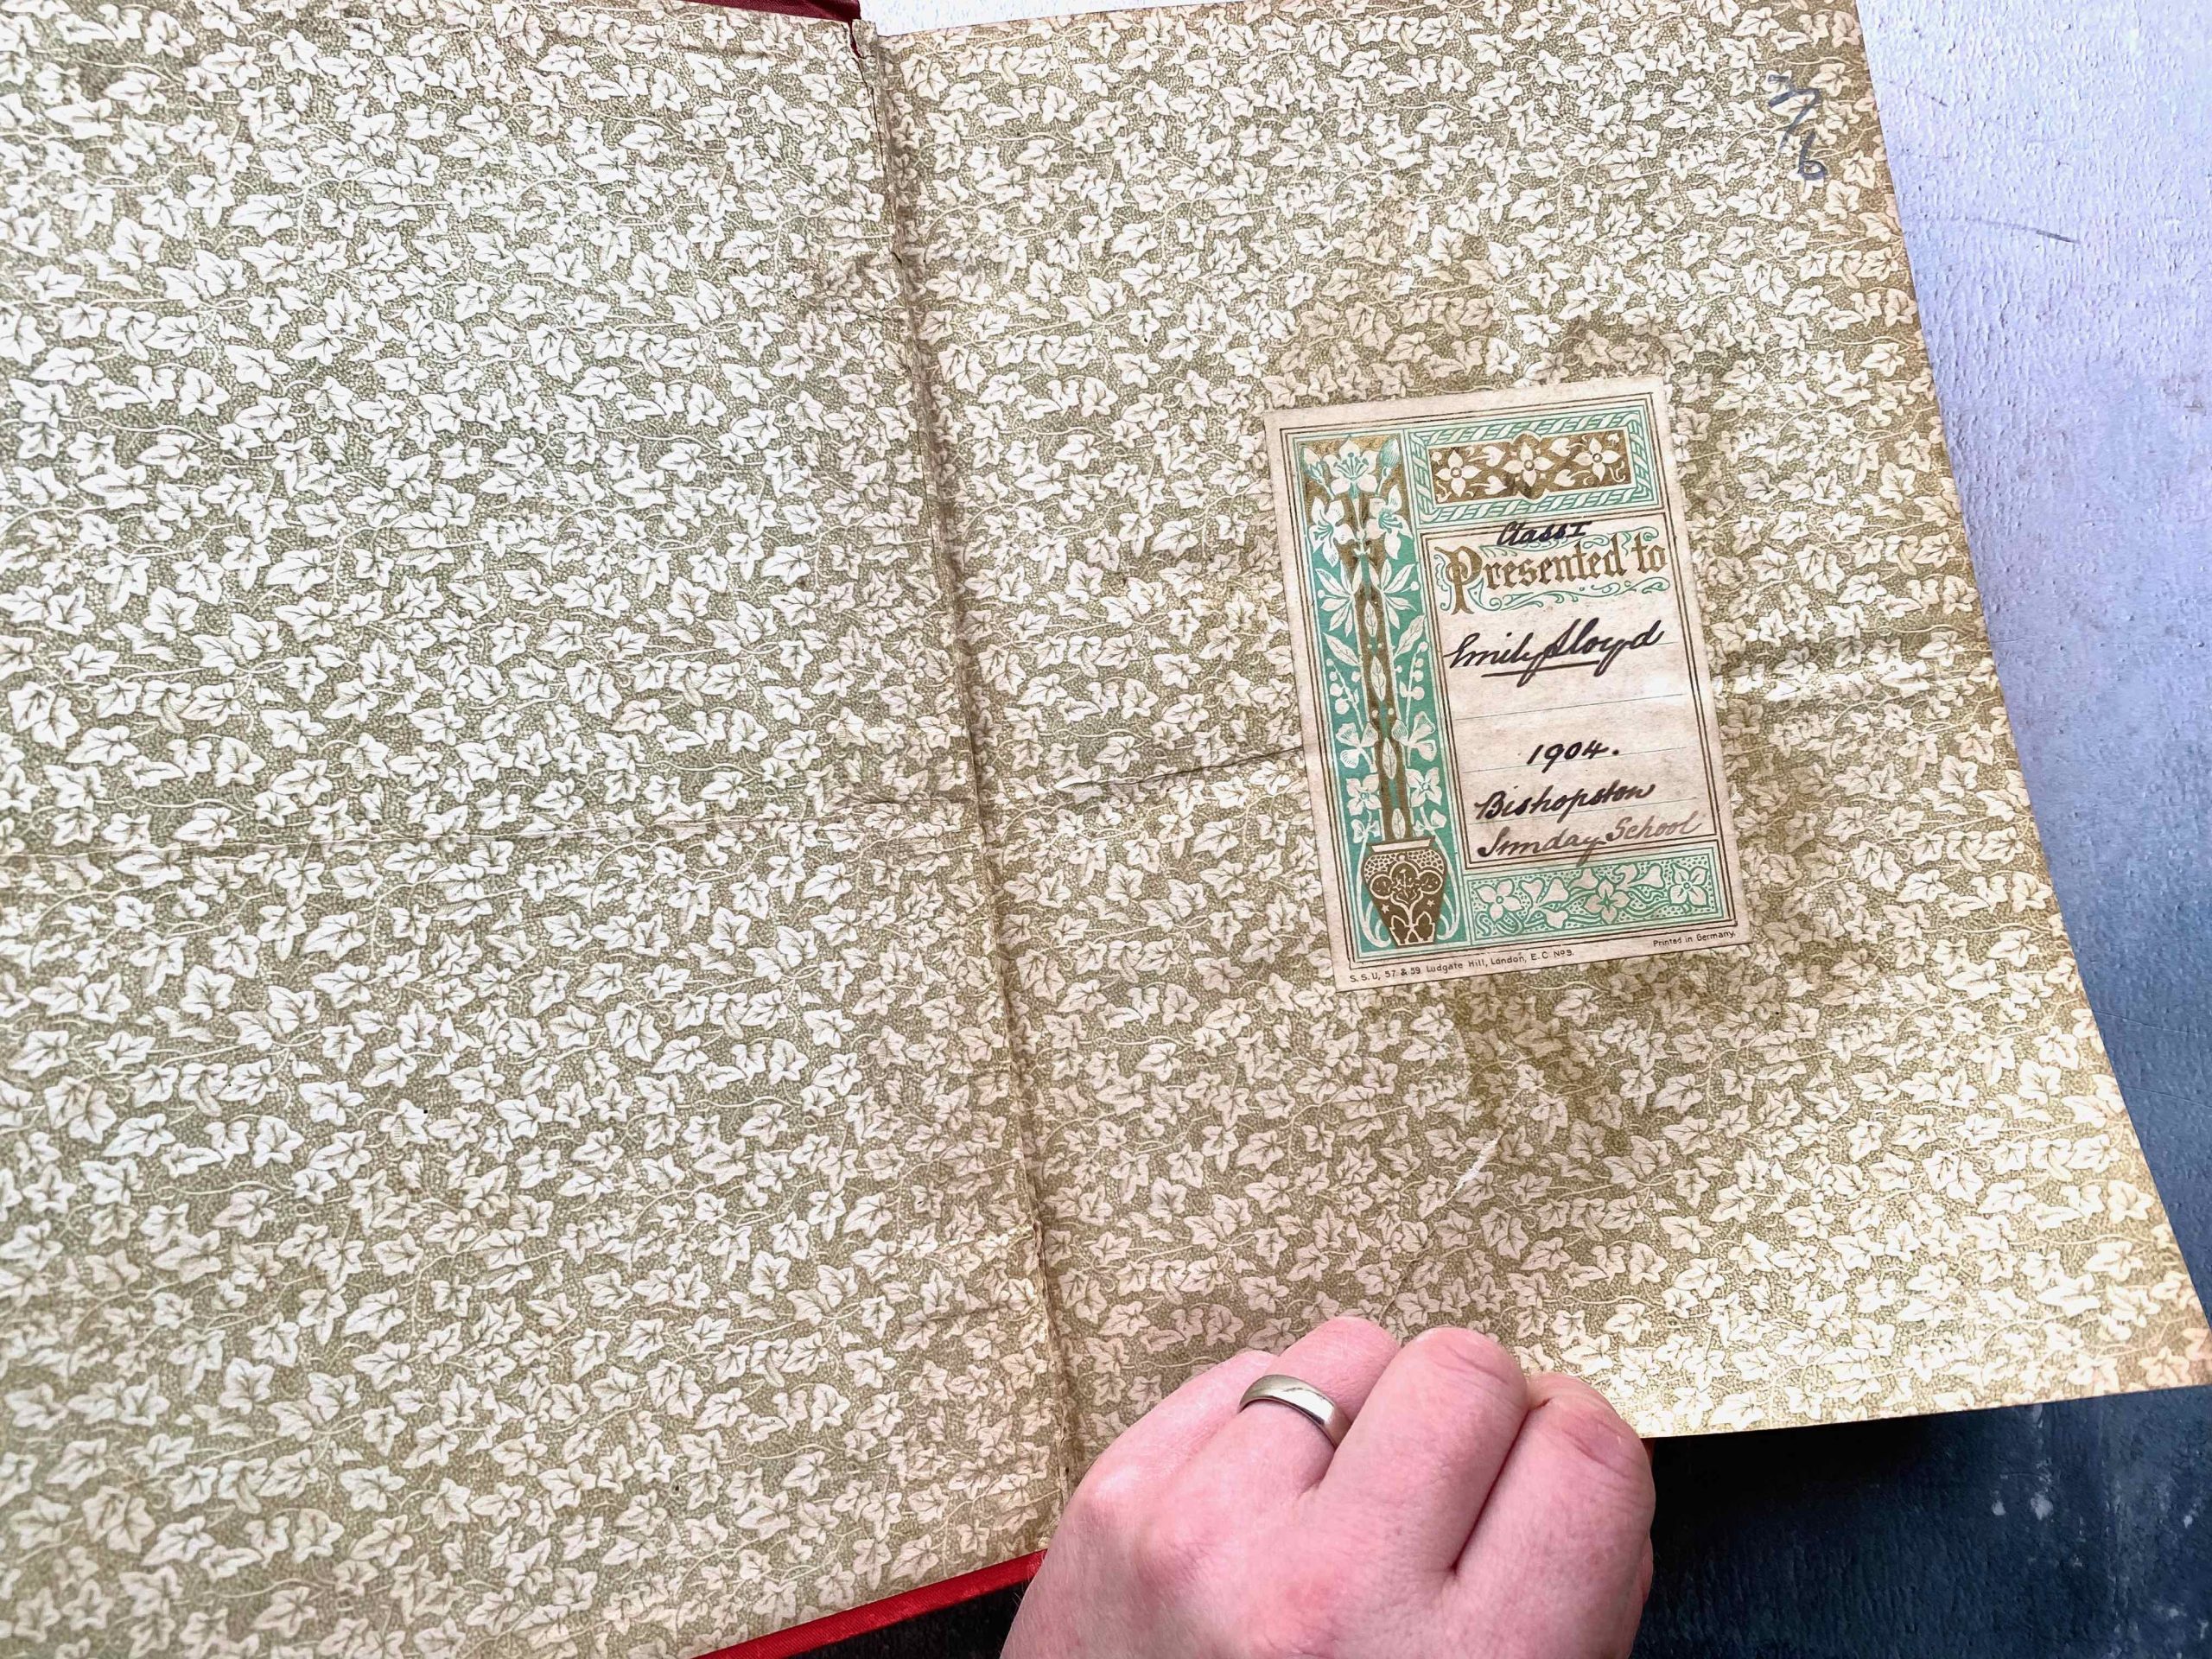 7/6
Class I
Presented to
Emily Lloyd
1904.
Bishopston
Sunday School
S.S.U, 57 & 59 Ludgate Hill, London, E.C. Nº9.
Printed in Germany.